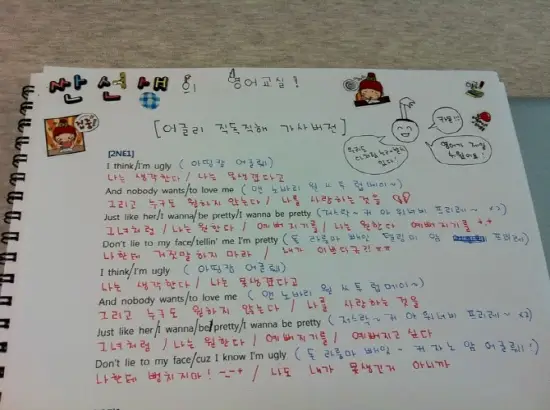 산선생의 영어교실!
[어글리 직독직해 가사버전]
[2NE1]
I think/I'm ugly (아띵캄 어글뤼)
나는 생각한다 / 나는 못생겼다고
And nobody wants/to love me (앤 노바리 원 쓰 투 럽메이~)
그리고 누구도 원하지 않는다 / 나를 사랑하는 것을
Just like her/I wanna/be pretty/I wanna be pretty
그녀처럼 / 나는 원한다 / 예뻐지기를 / 나는 원한다 예뻐지기를 ++
Don't lie to my face/tellin' me I'm pretty
나한테 거짓말 하지 마라 / 내가 이쁘다곳!! ㅠㅠ
I think/I'm ugly (아띵캄 어글뤼)
나는 생각한다 / 나는 못생겼다고
And nobody wants/to love me (앤 노바리 원 쓰 투 럽메이~)
그리고 누구도 원하지 않는다 / 나를 사랑하는 것을
Just like her/I wanna/be/pretty/I wanna be pretty
그녀처럼 / 나는 원한다 / 예뻐지기를 / 예뻐지고 싶다
Don't lie to my face/cuz I know I'm ugly
나한테 뻥치지마! --+ / 나도 내가 못생긴거 아니까